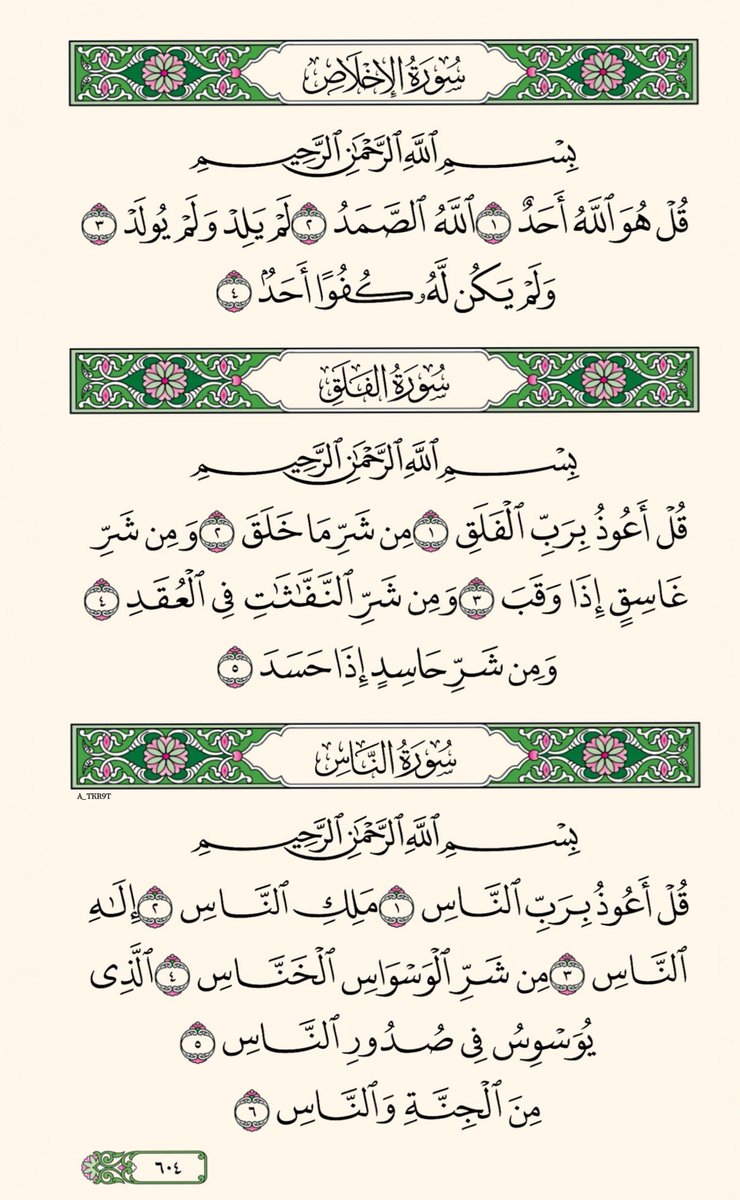 سُورَةُ الإِخْلَاصِ
بِسْمِ ٱللَّهِ ٱلرَّحْمَٰنِ ٱلرَّحِيمِ
قُلْ هُوَ ٱللَّهُ أَحَدٌ ١ ٱللَّهُ ٱلصَّمَدُ ٢ لَمْ يَلِدْ وَلَمْ يُولَدْ ٣
وَلَمْ يَكُن لَّهُۥ كُفُوًا أَحَدٌۢ ٤
سُورَةُ الفَلَقِ
بِسْمِ ٱللَّهِ ٱلرَّحْمَٰنِ ٱلرَّحِيمِ
قُلْ أَعُوذُ بِرَبِّ ٱلْفَلَقِ ١ مِن شَرِّ مَا خَلَقَ ٢ وَمِن شَرِّ
غَاسِقٍ إِذَا وَقَبَ ٣ وَمِن شَرِّ ٱلنَّفَّٰثَٰتِ فِي ٱلْعُقَدِ ٤
وَمِن شَرِّ حَاسِدٍ إِذَا حَسَدَ ٥
سُورَةُ النَّاسِ
A_TKR9T
بِسْمِ ٱللَّهِ ٱلرَّحْمَٰنِ ٱلرَّحِيمِ
قُلْ أَعُوذُ بِرَبِّ ٱلنَّاسِ ١ مَلِكِ ٱلنَّاسِ ٢ إِلَٰهِ
ٱلنَّاسِ ٣ مِن شَرِّ ٱلْوَسْوَاسِ ٱلْخَنَّاسِ ٤ ٱلَّذِى
يُوَسْوِسُ فِى صُدُورِ ٱلنَّاسِ ٥
مِنَ ٱلْجِنَّةِ وَٱلنَّاسِ ٦
٦٠٤